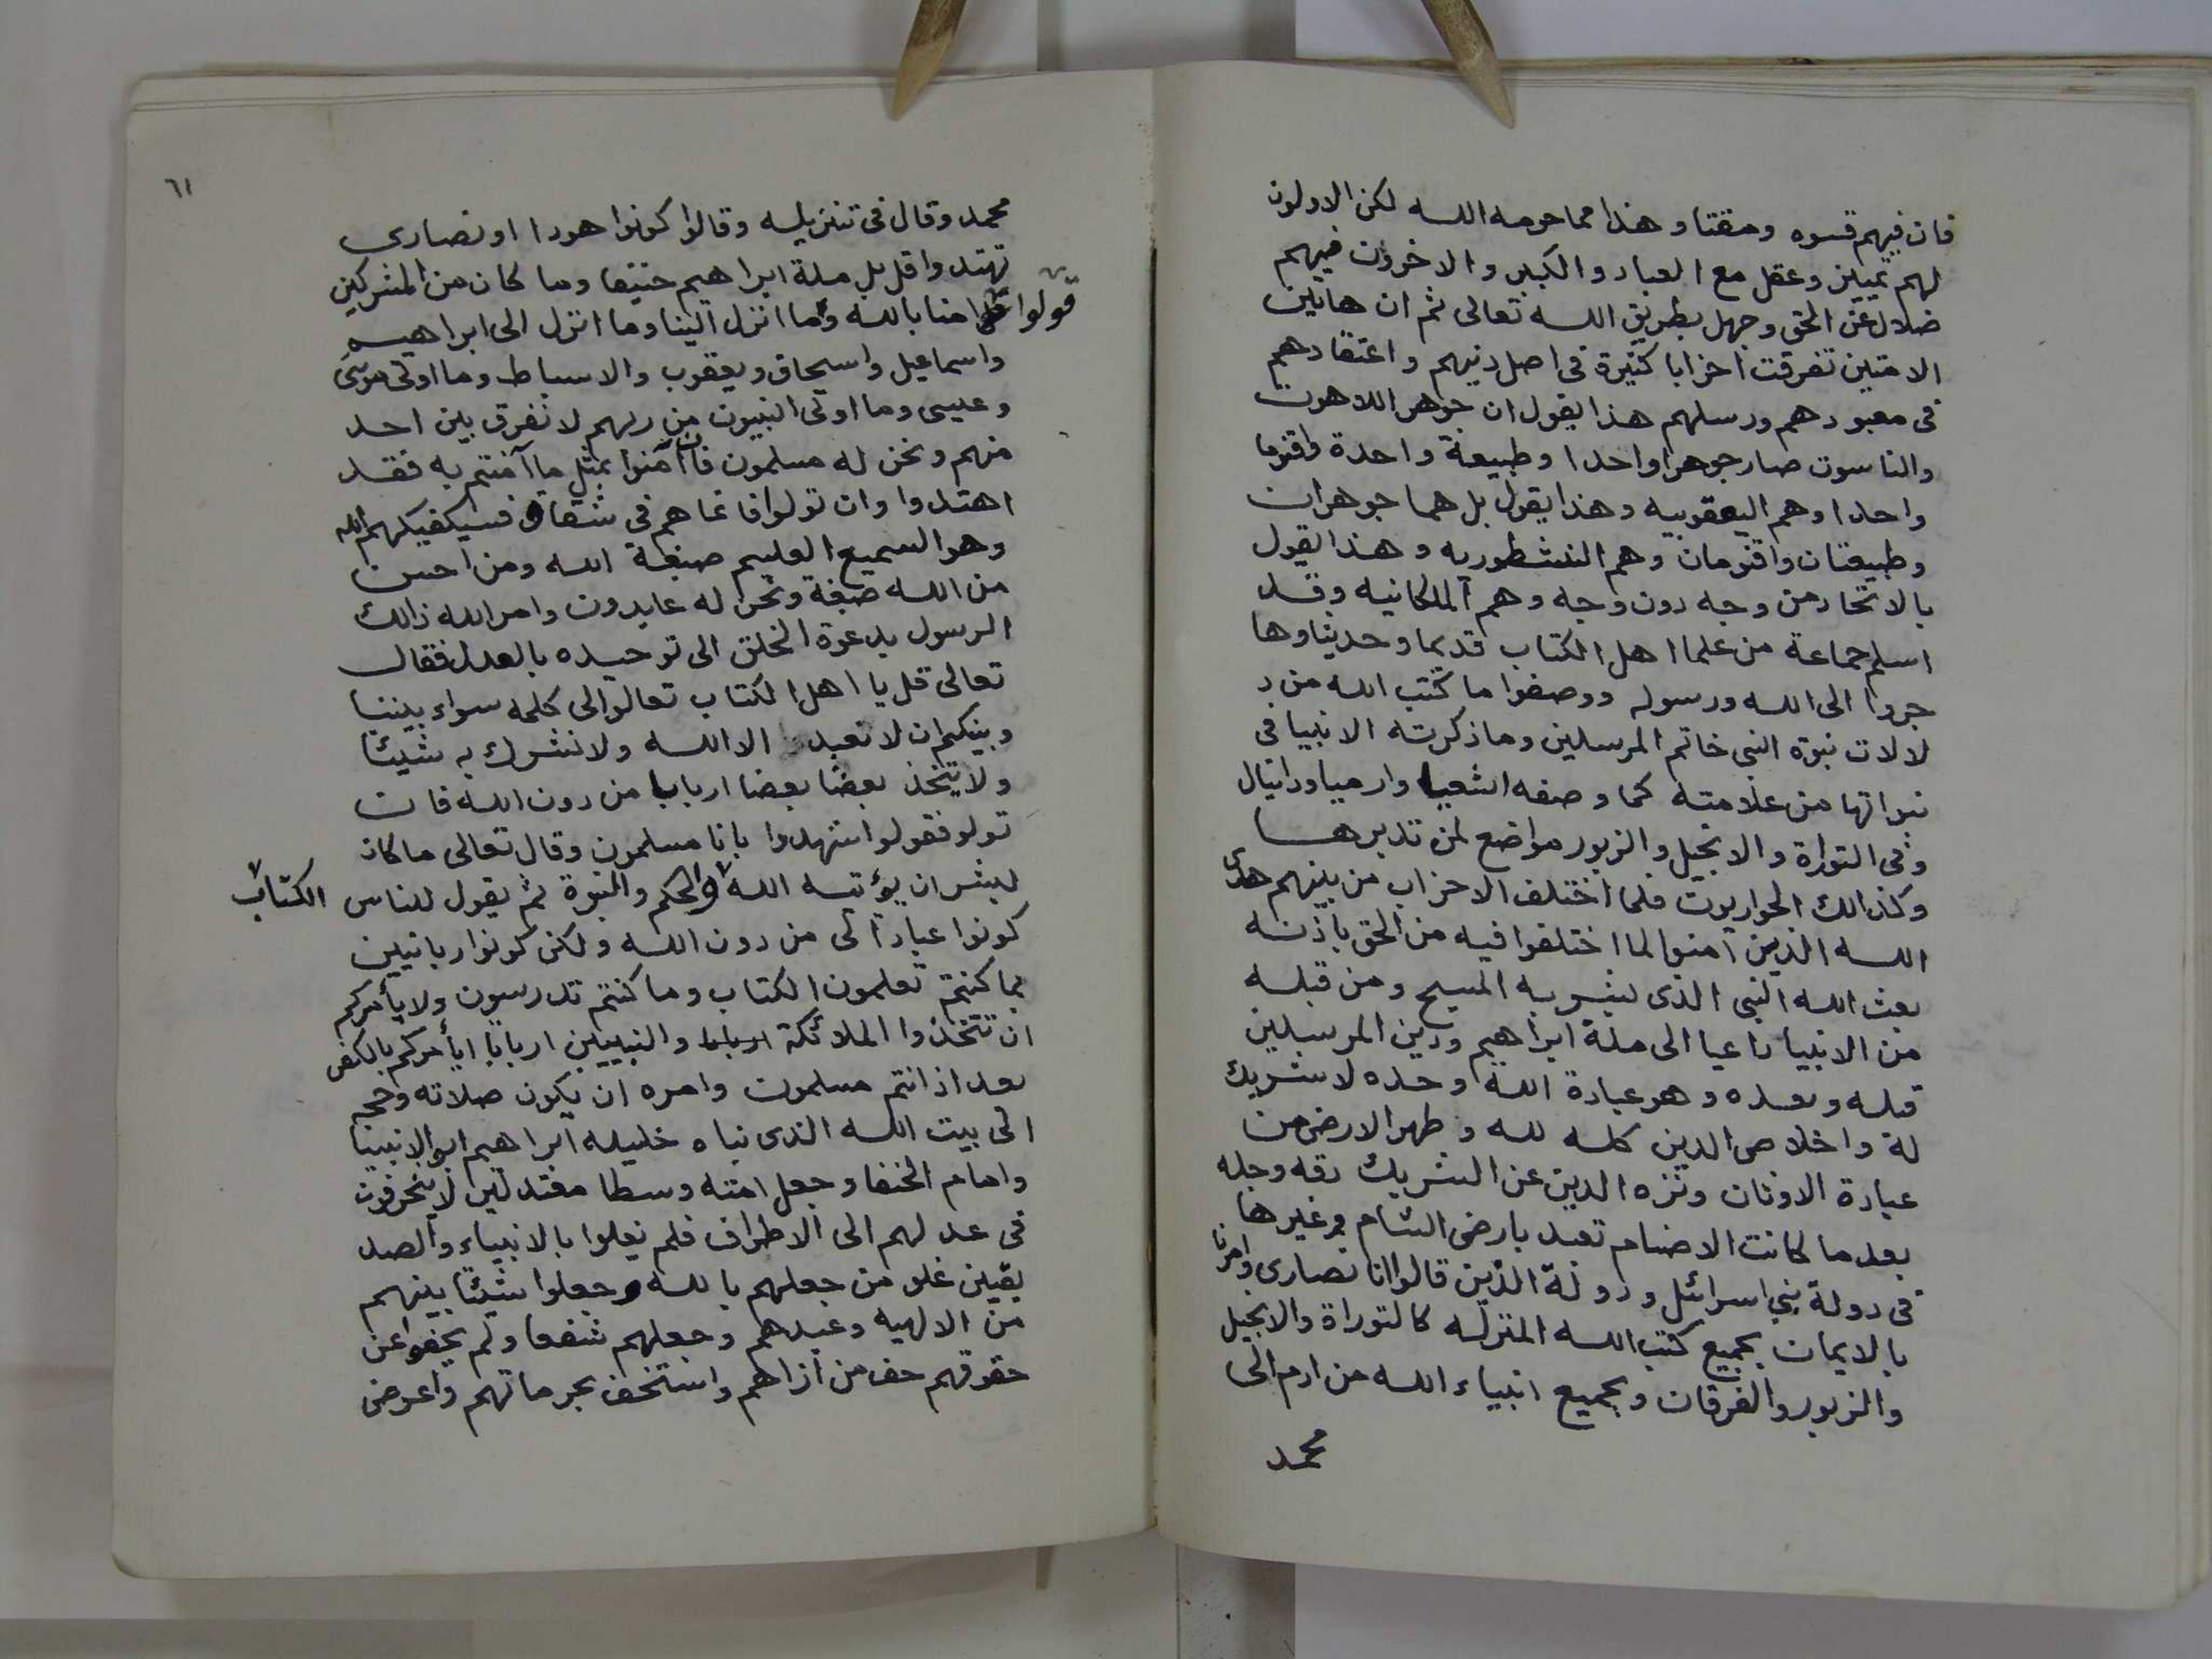 فان فيهم قسوه ومقتا وهذا مما حرمه الله لكن الاولون
لهم تمييز وعقل مع العناد والكبر والاخرون فيهم
ضلال عن الحق وجهل بطريق الله تعالى ثم ان هاتين
الامتين تفرقت احزابا كثيرة فى اصل دينهم واعتقادهم
فى معبودهم ورسلهم هذا يقول ان جوهر اللاهوت
والناسوت صار جوهرا واحدا وطبيعة واحدة واقنوما
واحدا وهم اليعقوبيه وهذا يقول بل هما جوهران
وطبيعتان واقنومان وهم النسطوريه وهذا يقول
بالاتحاد من وجه دون وجه وهم الملكانيه وقد
اسلم جماعة من علما اهل الكتاب قديما وحديثا وها
جروا الى الله ورسوله ووصفوا ما كتب الله من د
لالات نبوة النبى خاتم المرسلين وما ذكرته الانبيا فى
نبواتها من علامته كما وصفه اشعيا وارميا ودانيال
وفى التوراة والانجيل والزبور مواضع لمن تدبرها
وكذالك الحواريون فلما اختلف الاحزاب من بينهم هدى
الله الذين امنوا لما اختلفوا فيه من الحق باذنه
بعث الله النبى الذى بشر به المسيح ومن قبله
من الانبيا داعيا الى ملة ابراهيم ودين المرسلين
قبله وبعده وهو عبادة الله وحده لا شريك
لة واخلاص الدين كله لله وطهر الارض من
عبادة الاوثان ونزه الدين عن الشريك دقه وجله
بعد ما كانت الاصنام تعبد بارض الشام وغيرها
فى دولة بني اسرائل ودولة الذين قالوا انا نصارى وامرنا
بالايمان بجميع كتب الله المنزله كالتوراة والانجيل
والزبور والفرقان وبجميع انبياء الله من ادم الى
محمد
٦١
محمد وقال فى تنزيله وقالوا كونوا هودا او نصارى
تهتدوا قل بل ملة ابراهيم حنيفا وما كان من المشركين
قولوا امنا بالله وما انزل الينا وما انزل الى ابراهيم
واسماعيل واسحاق ويعقوب والاسباط وما اوتى موسى
وعيسى وما اوتى النبيون من ربهم لا نفرق بين احد
منهم ونحن له مسلمون فان آمنوا بمثل ما آمنتم به فقد
اهتدوا وان تولوا فانما هم فى شقاق فسيكفيكهم الله
وهو السميع العليم صبغة الله ومن احسن
من الله صبغة ونحن له عابدون وامر الله ذالك
الرسول بدعوة الخلق الى توحيده بالعدل فقال
تعالى قل يا اهل الكتاب تعالوا الى كلمه سواء بيننا
وبينكم ان لا نعبد الا الله ولا نشرك به شيئا
ولا يتخذ بعضنا بعضا اربابا من دون الله فان
تولو فقولوا اشهدوا بانا مسلمون وقال تعالى ما كان
لبشر ان يؤتيه الله الكتاب والحكم والنبوة ثم يقول للناس
كونوا عبادا لى من دون الله ولكن كونوا ربانيين
بما كنتم تعلمون الكتاب وما كنتم تدرسون ولا يأمركم
ان تتخذوا الملائكة والنبيين اربابا ايأمركم بالكفر
بعد اذ انتم مسلمون وامره ان يكون صلاته وحجه
الى بيت الله الذى بناه خليله ابراهيم ابو الانبيا
وامام الحنفا وجعل امته وسطا معتدلين لا ينحرفون
فى عدلهم الى الاطراف فلم يغلوا بالانبياء والصد
يقين غلو من جعلهم بالله وجعلوا شيئا بينهم
من الالهيه وعبدهم وجعلهم شفعا ولم يجفوا عن
حقوقهم جف من آذاهم واستخف بحرماتهم واعرض